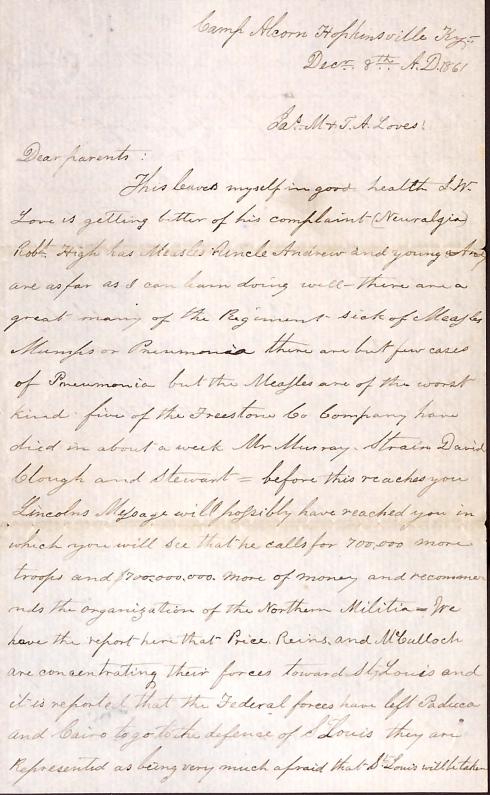 Camp Alcorn Hopkinsville Ky
Decr. 8th A.D. 1861
Jas. M & T. A. Loves!
Dear parents:
This leaves myself in good health J. W.
Love is getting better of his complaint (Neuralgia)
Robt. High has Measles Uncle Andrew and young
are as far as I can learn doing well - there are a
great many of the Regiment sick of Measles
Mumps or Pneumonia there are but few cases
of Pneumonia but the Measles are of the worst
kind five of the Freestone Co Company have
died in about a week Mr Murray. Strain David
Clough and Stewart = before this reaches you
Lincolns Message will possibly have reached you in
which you will see that he calls for 700,000 more
troops and $700,000,000. more of money and recomme
nds the organization of the Northern Militia = We
have the report here that Price, Reins, and McCulloch
are concentrating their forces toward St Louis and
it is reported that the Federal forces have left Paduca
and Cairo to go to the defence of St Louis they are
Represented as being very much afraid that St Louis will be taken